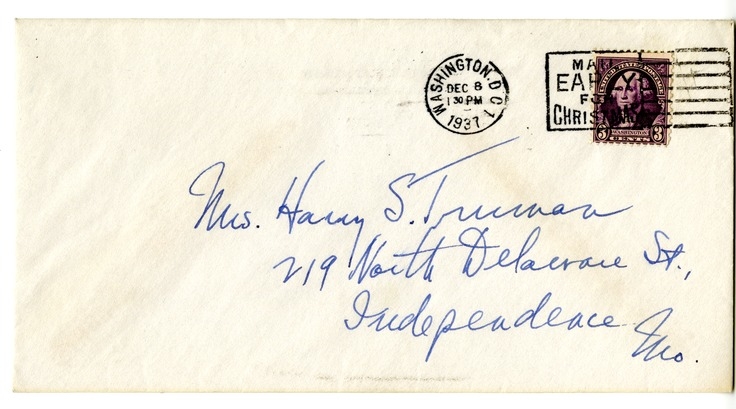 WASHINGTON, D.C. 1
DEC 8
1 30 PM
1937
MAIL
EARLY
FOR
CHRISTMAS
UNITED STATES POSTAGE
3 WASHINGTON 3
Mrs. Harry S. Truman
219 North Delaware St.,
Independence
Mo.